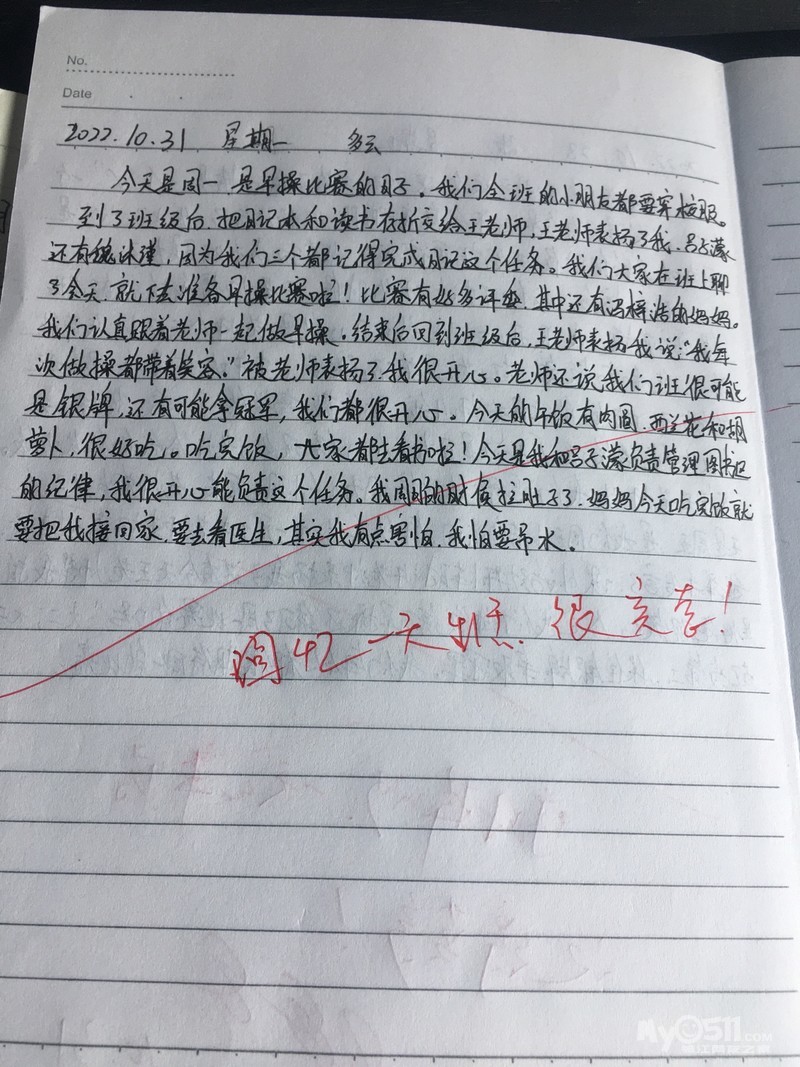 No.
Date
2022.10.31 星期一 多云
今天是周一 是早操比赛的日子。我们全班的小朋友都要穿校服。
到了班级后,把日记本和读书存折交给王老师,王老师表扬了我、吕子濛
还有魏沐瑾,因为我们三个都记得完成日记这个任务。我们大家在班上聊
了会天,就下去准备早操比赛啦!比赛有好多评委,其中还有冯梓浩的妈妈。
我们认真跟着老师一起做早操。结束后回到班级后,王老师表扬我说:“我每
次做操都带着笑容。”被老师表扬了我很开心。老师还说我们班很可能
是银牌,还有可能拿冠军,我们都很开心。今天的午饭有肉圆、西兰花和胡
萝卜,很好吃。吃完饭,大家都去看书啦!今天是我和吕子濛负责管理图书区
的纪律,我很开心能负责这个任务。我周日的时候拉肚子了,妈妈今天吃完饭就
要把我接回家,要去看医生,其实我有点害怕,我怕要吊水。
一天 很
My0511.COM